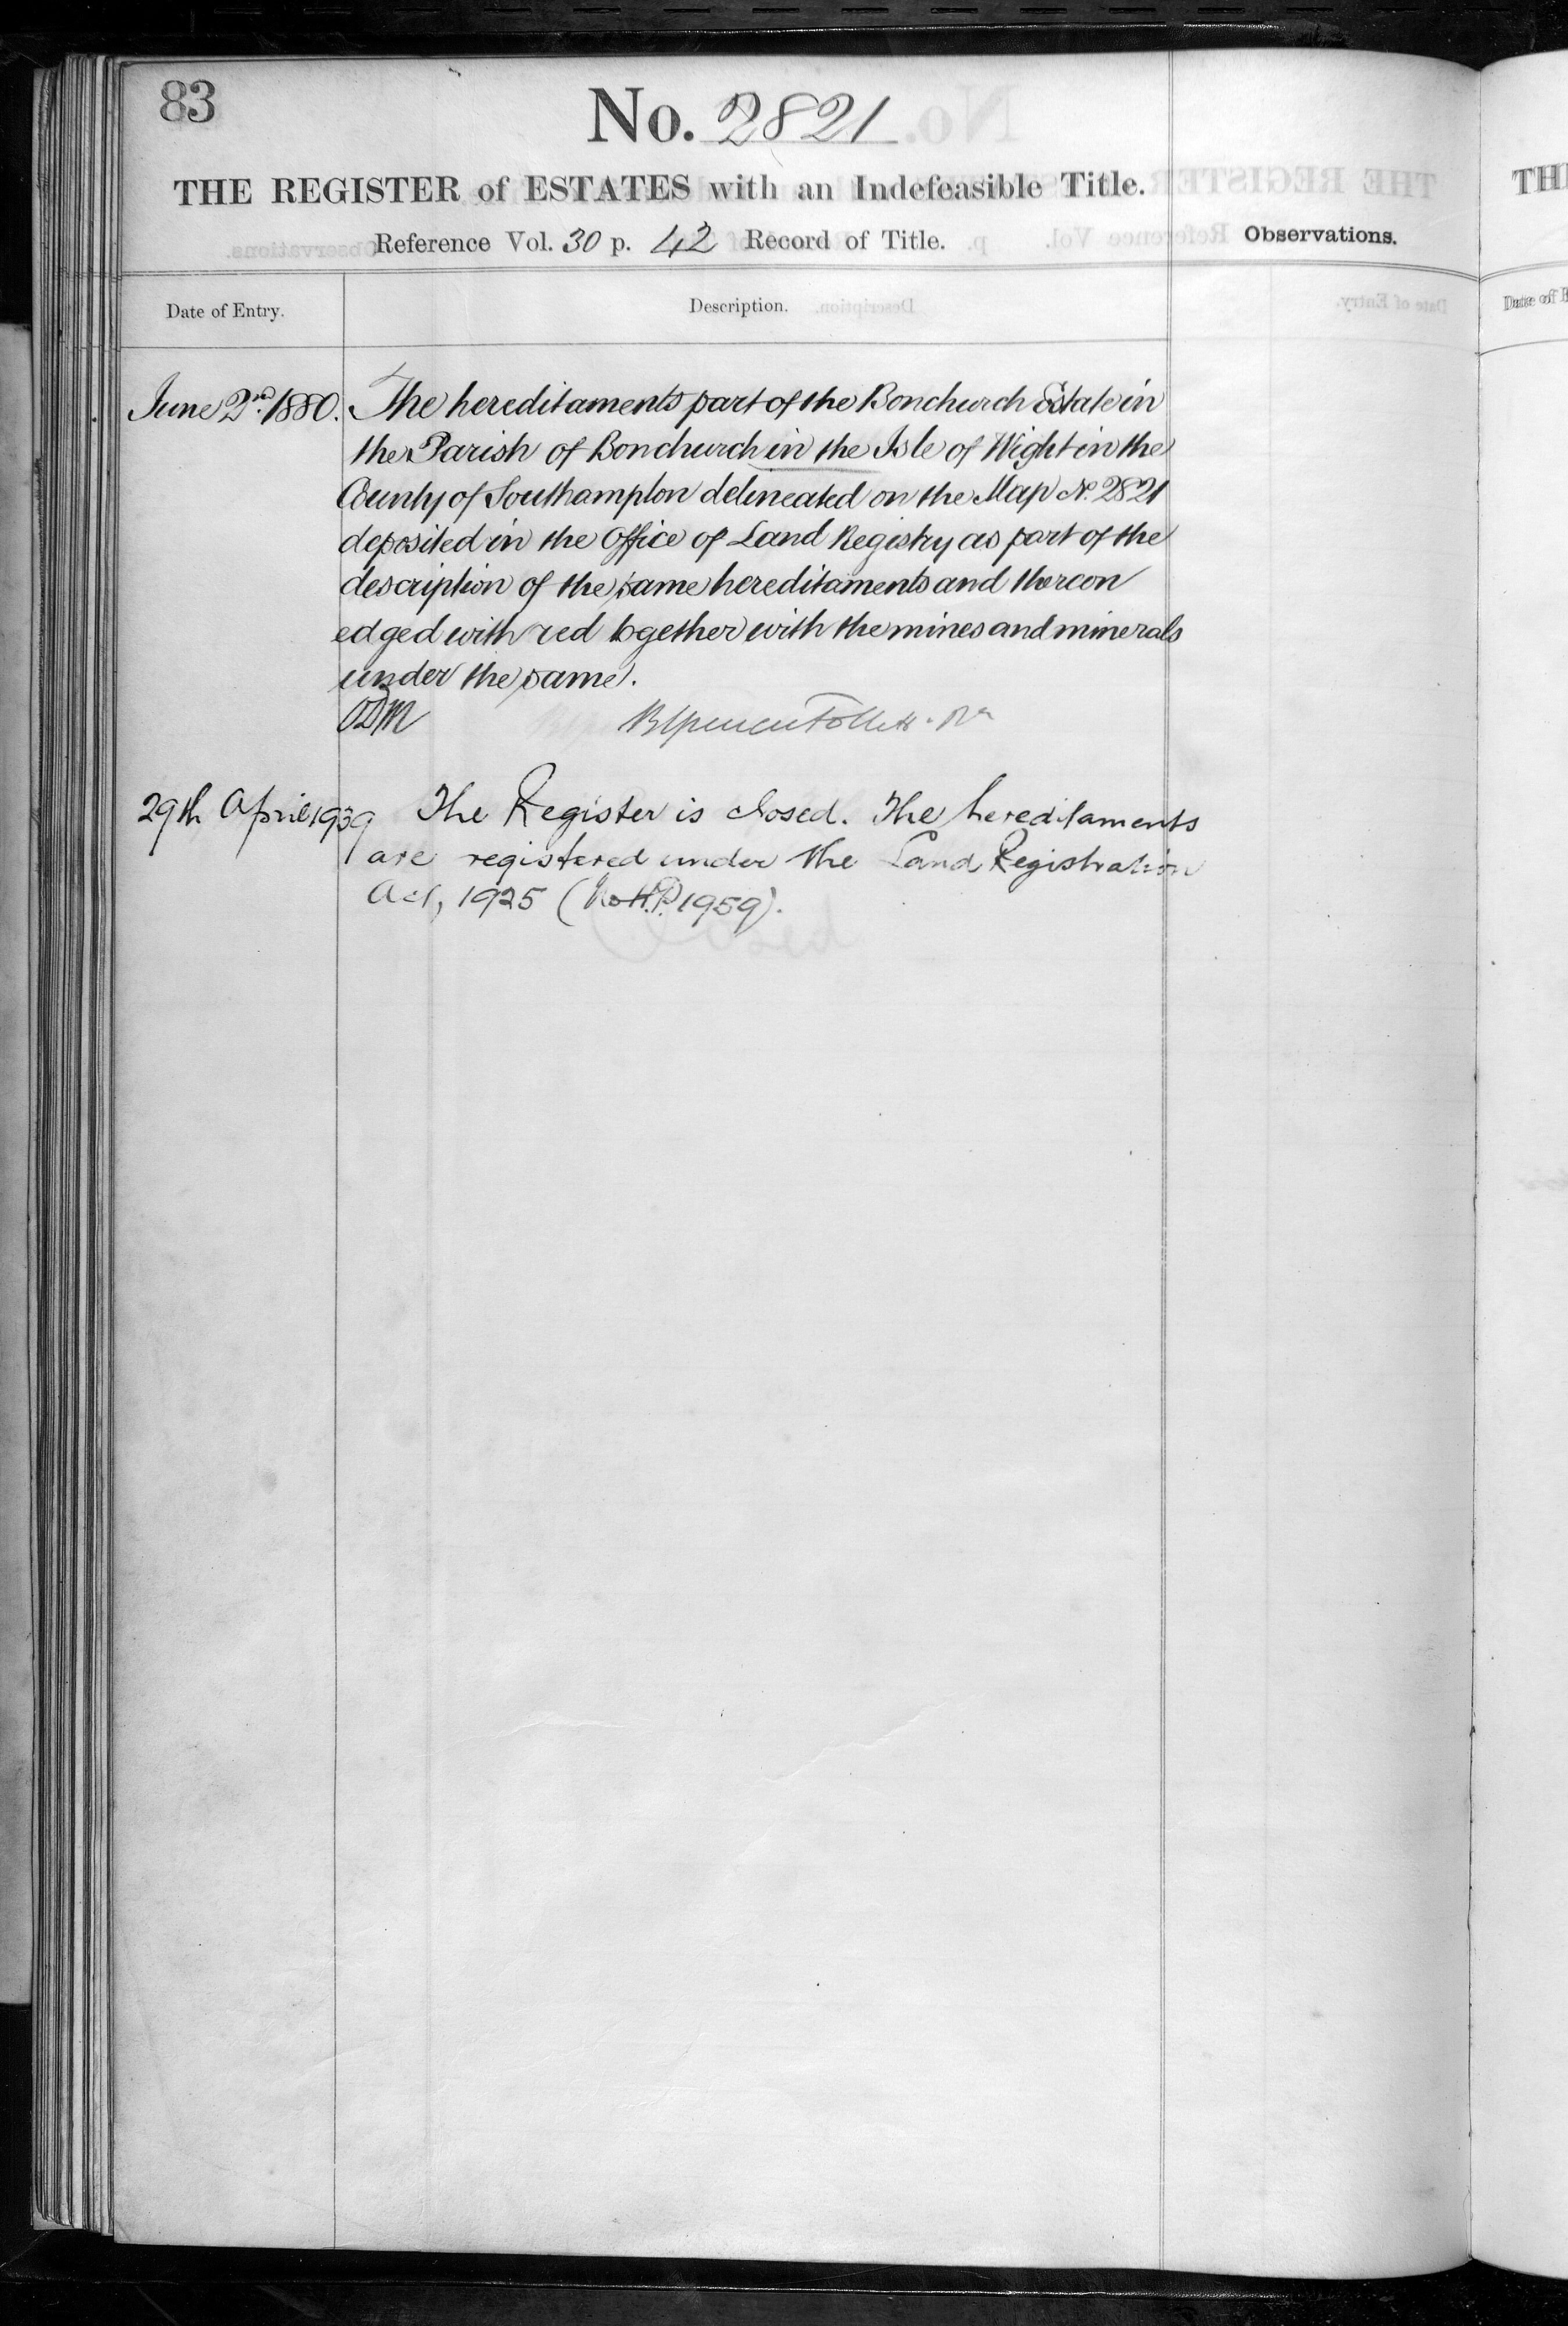 83
No. 2821
THE REGISTER of ESTATES with an Indefeasible Title.
Reference Vol. 30 p. 42 Record of Title.
Observations.
Date of Entry.
Description.
June 2nd 1880. The hereditaments part of the Bonchurch Estate in
the Parish of Bonchurch in the Isle of Wight in the
County of Southampton delineated on the Map No. 2821
deposited in the Office of Land Registry as part of the
description of the same hereditaments and thereon
edged with red together with the mines and minerals
under the same.
29th April 1939 The Register is closed. The hereditaments
are registered under the Land Registration
Act, 1925 (No H.P. 1959).
TH